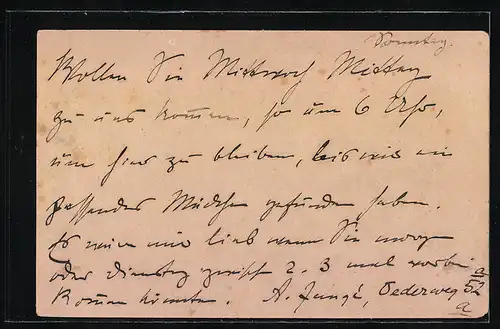 Sonntag.
Wollen Sie Mittwoch Mittag
zu uns kommen, so um 6 Uhr,
um hier zu bleiben, bis wir ein
passendes Mädchen gefunden haben.
Es wäre mir lieb wenn Sie morgen
oder Dienstag zwisch 2-3 mal vorbei
kommen könnten. A. Jungé, Oederweg 52
a